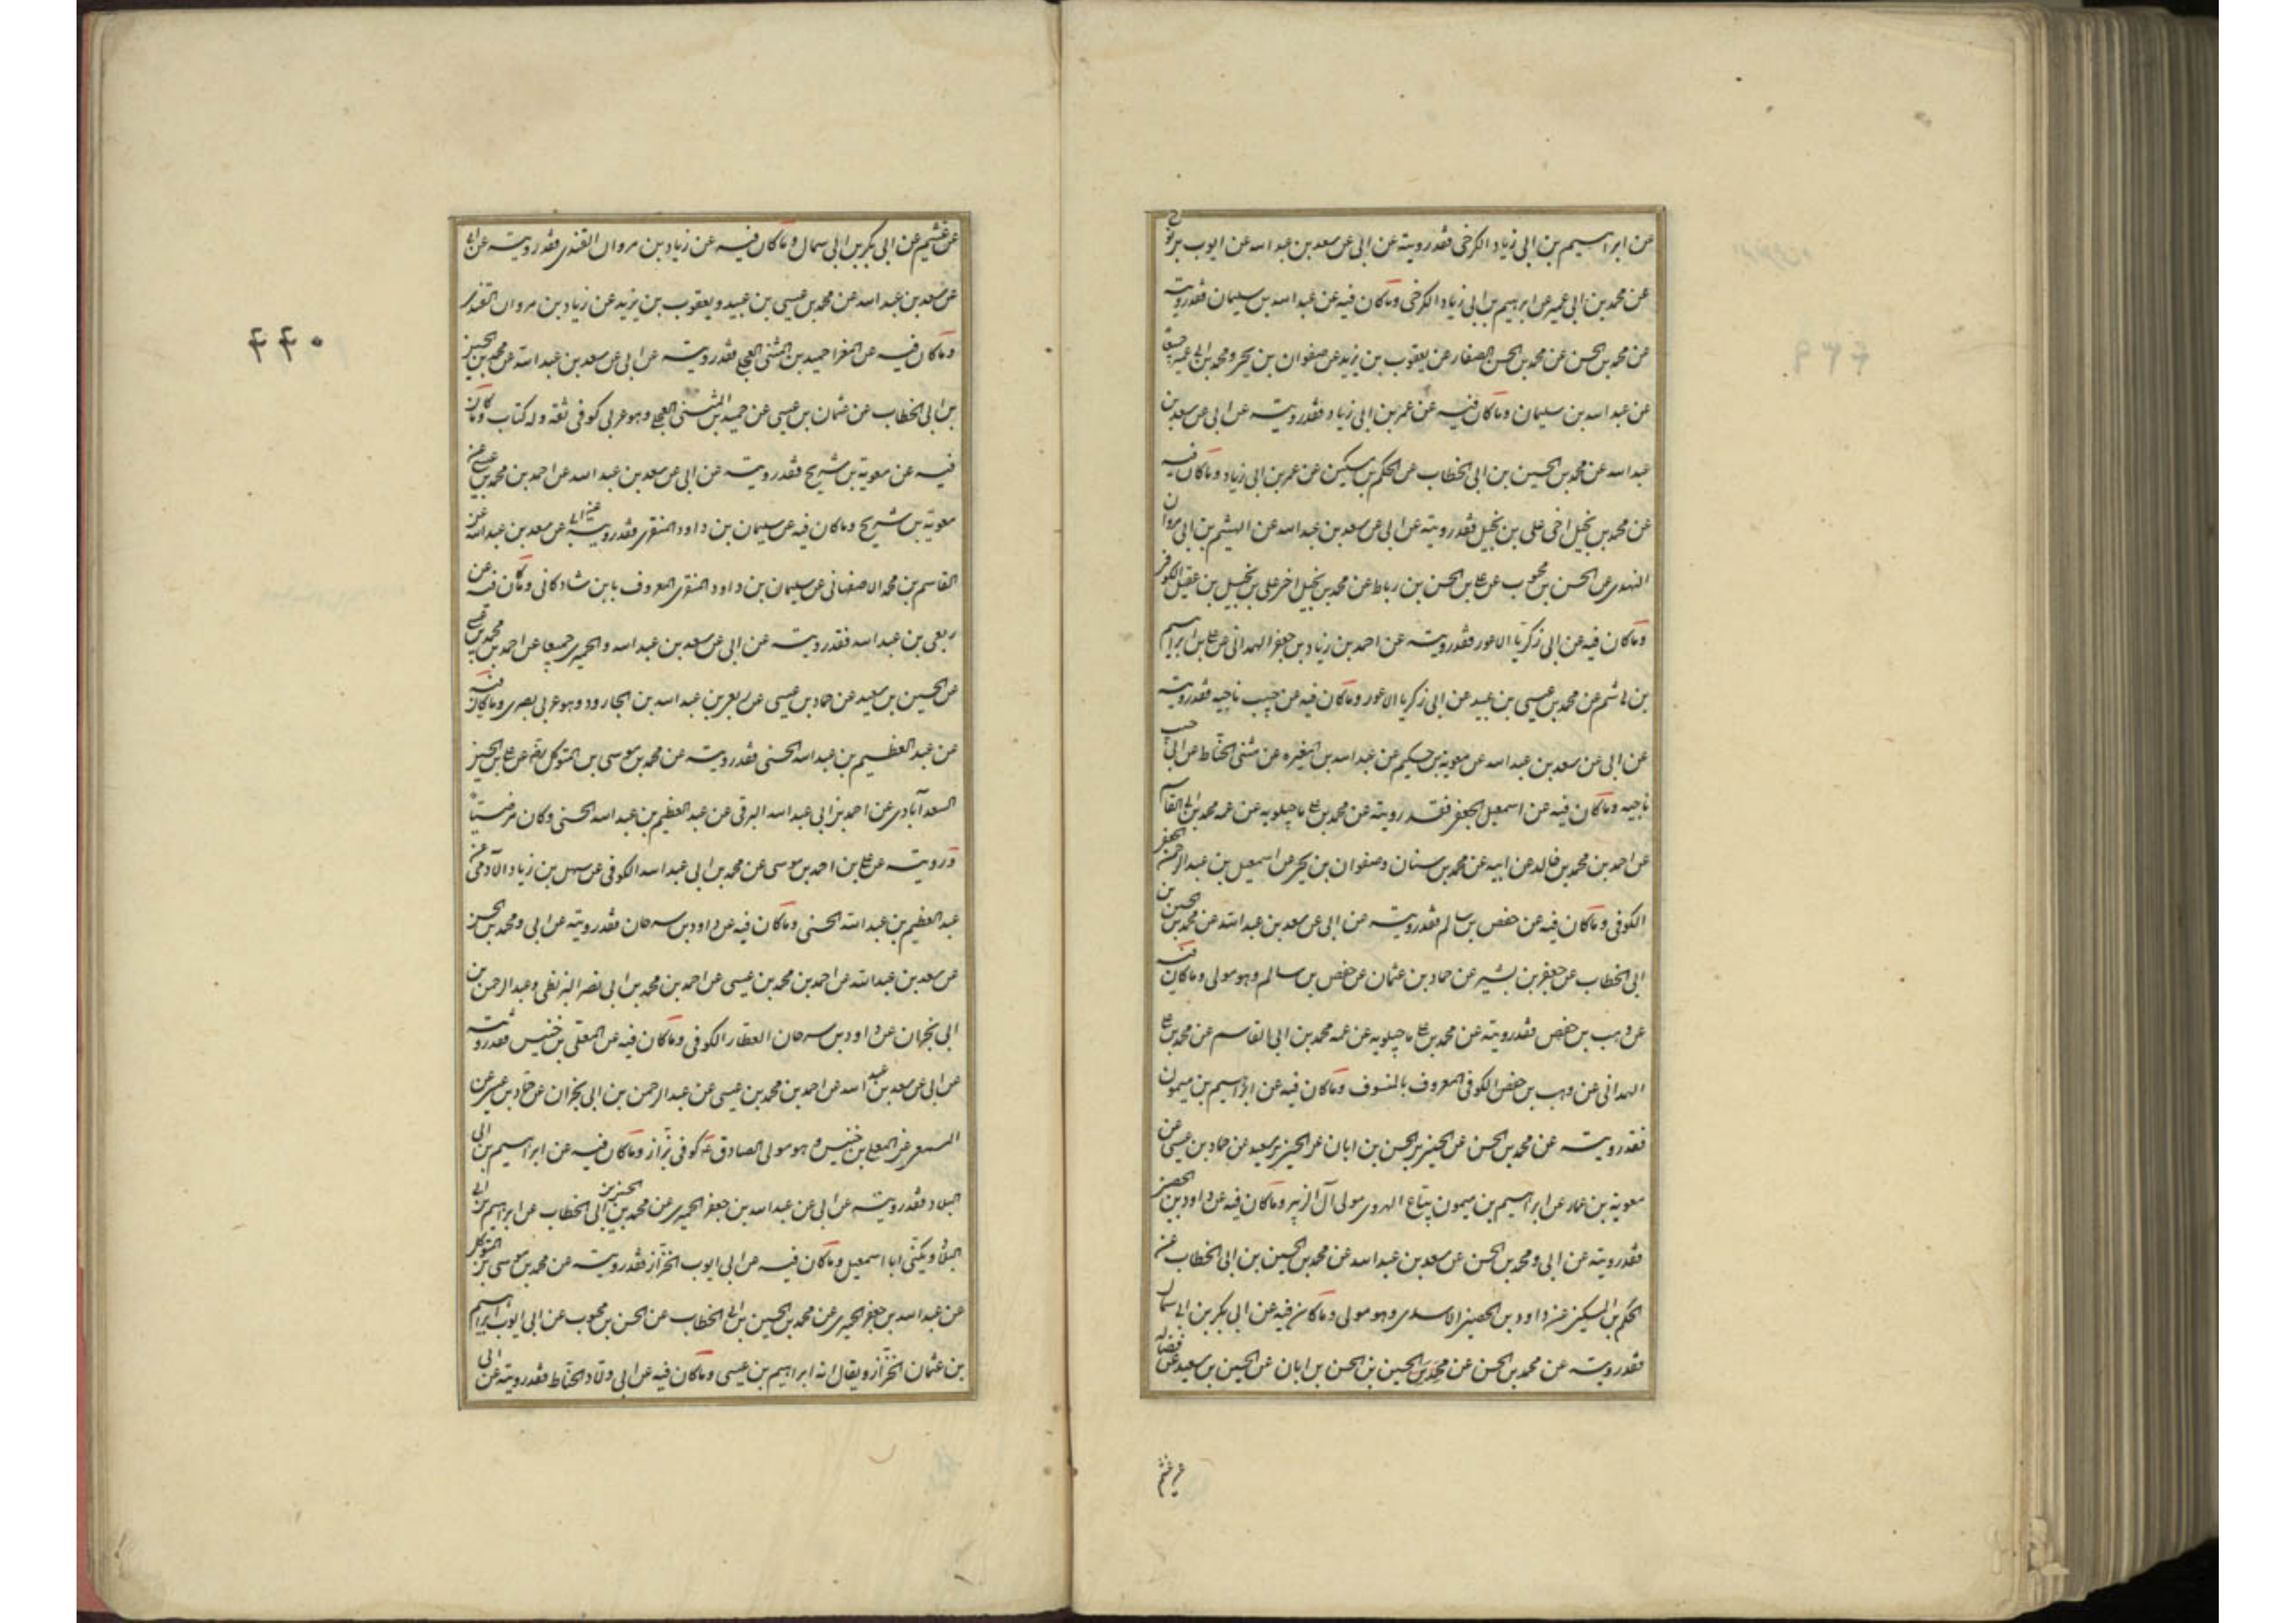 عن ابراهيم بن ابى زياد الكرخى فقد رويته عن ابى عن سعد بن عبد الله عن ايوب بن نوح
عن محمد بن ابى عمير عن ابرهيم بن ابى زياد الكرخى وما كان فيه عن عبد الله بن سليمان فقد رويته
عن محمد بن الحسن عن محمد بن الحسن الصفار عن يعقوب بن يزيد عن صفوان بن يحيى ومحمد بن ابى عمير جميعا
عن عبد الله بن سليمان وما كان فيه عن عمر بن ابى زياد فقد رويته عن ابى عن سعد بن
عبد الله عن محمد بن الحسين بن ابى الخطاب عن الحكم بن مسكين عن عمر بن ابى زياد وما كان فيه
عن محمد بن بجيل اخى على بن بجيل فقد رويته عن ابى عن سعد بن عبد الله عن الهيثم بن ابى مروان
النهدى عن الحسن بن محبوب عن على بن الحسن بن رباط عن محمد بن بجيل اخى على بن بجيل بن عقيل الكوفى
وما كان فيه عن ابى زكريا الاعور فقد رويته عن احمد بن زياد بن جعفر الهمدانى عن على بن ابراهيم
بن هاشم عن محمد بن عيسى بن عبيد عن ابى زكريا الاعور وما كان فيه عن حبيب ناجيه فقد رويته
عن ابى عن سعد بن عبد الله عن معوية بن حكيم عن عبد الله بن المغيره عن مثنى الحناط عن ابى حبيب
ناجيه وما كان فيه عن اسمعيل الجعفى فقد رويته عن محمد بن على ماجيلويه عن عمه محمد بن ابى القاسم
عن احمد بن محمد بن خالد عن ابيه عن محمد بن سنان وصفوان بن يحيى عن اسمعيل بن عبد الرحمن الجعفى
الكوفى وما كان فيه عن حفص بن سالم فقد رويته عن ابى عن سعد بن عبد الله عن محمد بن الحسين بن
ابى الخطاب عن جعفر بن بشير عن حماد بن عثمان عن حفص بن سالم وهو مولى وما كان فيه
عن وهب بن حفص فقد رويته عن محمد بن على ماجيلويه عن عمه محمد بن ابى القاسم عن محمد بن على
الهمدانى عن وهب بن حفص الكوفى المعروف بالمنتوف وما كان فيه عن ابراهيم بن ميمون
فقد رويته عن محمد بن الحسن عن الحسين بن الحسن بن ابان عن الحسين بن سعيد عن حماد بن عيسى عن
معوية بن عمار عن ابراهيم بن ميمون بياع الهروى مولى آل الزبير وما كان فيه عن داود بن الحصين
فقد رويته عن ابى ومحمد بن الحسن عن سعد بن عبد الله عن محمد بن الحسين بن ابى الخطاب عن
الحكم بن المسكين عن داود بن الحصين الاسدى وهو مولى وما كان فيه عن ابى بكر بن ابى سمال
فقد رويته عن محمد بن الحسن عن محمد بن الحسين بن الحسن بن ابان عن الحسين بن سعيد عن فضالة
عن عثيم
عن عثيم عن ابى بكر بن ابى سمال وما كان فيه عن زياد بن مروان القندى فقد رويته عن ابى
عن سعد بن عبد الله عن محمد بن عيسى بن عبيد ويعقوب بن يزيد عن زياد بن مروان القندى
وما كان فيه عن المغرا حميد بن المثنى العجلى فقد رويته عن ابى عن سعد بن عبد الله عن محمد بن الحسين
بن ابى الخطاب عن عثمان بن عيسى عن حميد بن المثنى العجلى وهو عربى كوفى ثقة وله كتاب وما كان
فيه عن معوية بن شريح فقد رويته عن ابى عن سعد بن عبد الله عن احمد بن محمد بن عيسى عن
معوية بن شريح وما كان فيه عن سليمان بن داود المنقرى فقد رويته عن ابى عن سعد بن عبد الله عن
القاسم بن محمد الاصفهانى عن سليمان بن داود المنقرى المعروف بابن شادكانى وما كان فيه عن
ربعى بن عبد الله فقد رويته عن ابى عن سعد بن عبد الله والحميرى جميعا عن احمد بن محمد بن عيسى
عن الحسين بن سعيد عن حماد بن عيسى عن ربعى بن عبد الله بن الجارود وهو عربى بصرى وما كان فيه
عن عبد العظيم بن عبد الله الحسنى فقد رويته عن محمد بن موسى بن المتوكل رضه عن على بن الحسين
السعدآبادى عن احمد بن ابى عبد الله البرقى عن عبد العظيم بن عبد الله الحسنى وكان مرضيا
ورويته عن على بن احمد بن موسى عن محمد بن ابى عبد الله الكوفى عن سهل بن زياد الآدمى عن
عبد العظيم بن عبد الله الحسنى وما كان فيه عن داود بن سرحان فقد رويته عن ابى ومحمد بن الحسن
عن سعد بن عبد الله عن احمد بن محمد بن عيسى عن احمد بن محمد بن ابى نصر البزنطى وعبد الرحمن بن
ابى نجران عن داود بن سرحان العطار الكوفى وما كان فيه عن المعلى بن خنيس فقد رويته
عن ابى عن سعد بن عبد الله عن احمد بن محمد بن عيسى عن عبد الرحمن بن ابى نجران عن حماد بن عيسى عن
المسمعى عن المعلى بن خنيس وهو مولى الصادق ع كوفى بزاز وما كان فيه عن ابراهيم بن ابى
البلاد فقد رويته عن ابى عن عبد الله بن جعفر الحميرى عن محمد بن الحسين بن ابى الخطاب عن ابراهيم بن ابى
البلاد ويكنى ابا اسمعيل وما كان فيه عن ابى ايوب الخزاز فقد رويته عن محمد بن موسى بن المتوكل
عن عبد الله بن جعفر الحميرى عن محمد بن الحسين بن ابى الخطاب عن الحسن بن محبوب عن ابى ايوب ابراهيم
بن عثمان الخزاز ويقال انه ابراهيم بن عيسى وما كان فيه عن ابى ولاد الحناط فقد رويته عن ابى
۴۴۰